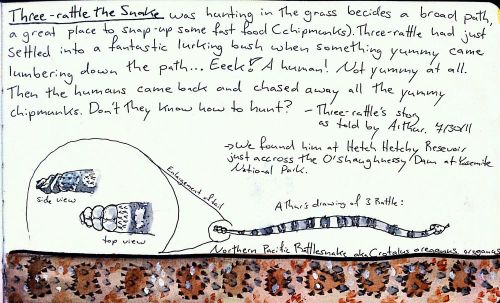 Three-rattle the Snake was hunting in the grass becides a broad path,
a great place to snap-up some fast food (chipmunks). Three-rattle had just
settled into a fantastic lurking bush when something yummy came
lumbering down the path... Eeek! A human! Not yummy at all.
Then the humans came back and chased away all the yummy
chipmunks. Don't they know how to hunt?
- Three-rattle's story
as told by Arthur. 7/30/11
→ We found him at Hetch Hetchy Resevoir
just accross the O'Shaughnessy Dam at Yosemite
National Park.
Enlargement of tail
side view
top view
Athur's drawing of 3 Rattle:
Northern Pacific Rattlesnake aka Crotalus oreganus oreganus